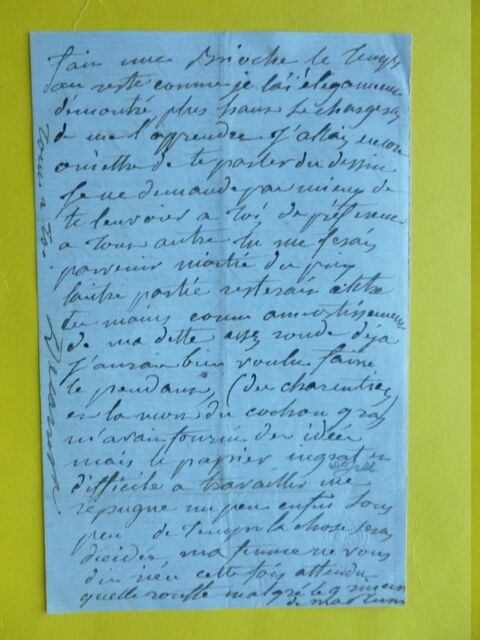 faire une Brioche le temps
au reste comme je l'ai élégamment
démontré plus haut se chargera
de me l'apprendre J'allais encore
omettre de te parler du dessin
Je ne demande pas mieux de
te l'envoyer a toi de préférence
a tout autre tu me ferais
parvenir moitié du prix
l'autre partie resterait entre
tes mains comme amortissement
de ma dette assez ronde déja
J'aurais bien voulu faire
le pendant, (du charcutier)
et la mort du cochon gras
m'avait fourni des idées
mais le papier ingrat et
difficile a travailler me
répugne un peu enfin sous
peu de temps la chose sera
décidée ma femme ne vous
dit rien cette fois attendu
quelle ronfle malgré le
de ma plume
tout a toi